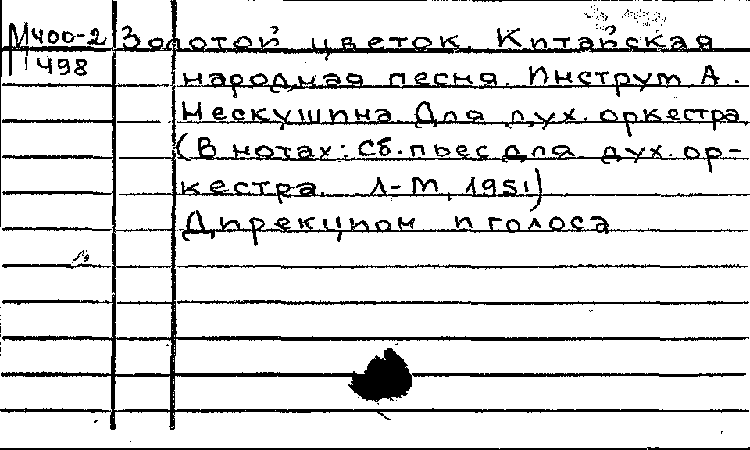 М400-2 Золотой цветок. Китайская
498 народная песня. Инструм. А.
Нескушина. Для дух. оркестра
(В нотах: Сб. пьес для дух. ор-
кестра. Л-М, 1951)
Дирекцион и голоса